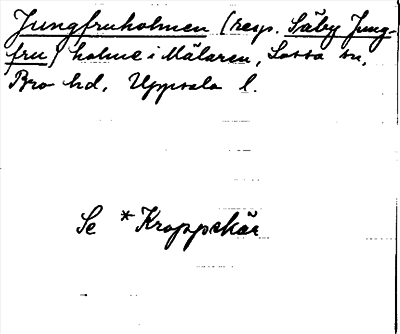 Jungfruholmen (resp. Säby Jung-
fru) holme i Mälaren, Låssa sn,
Bro hd, Uppsala l.
Se *Kroppskär